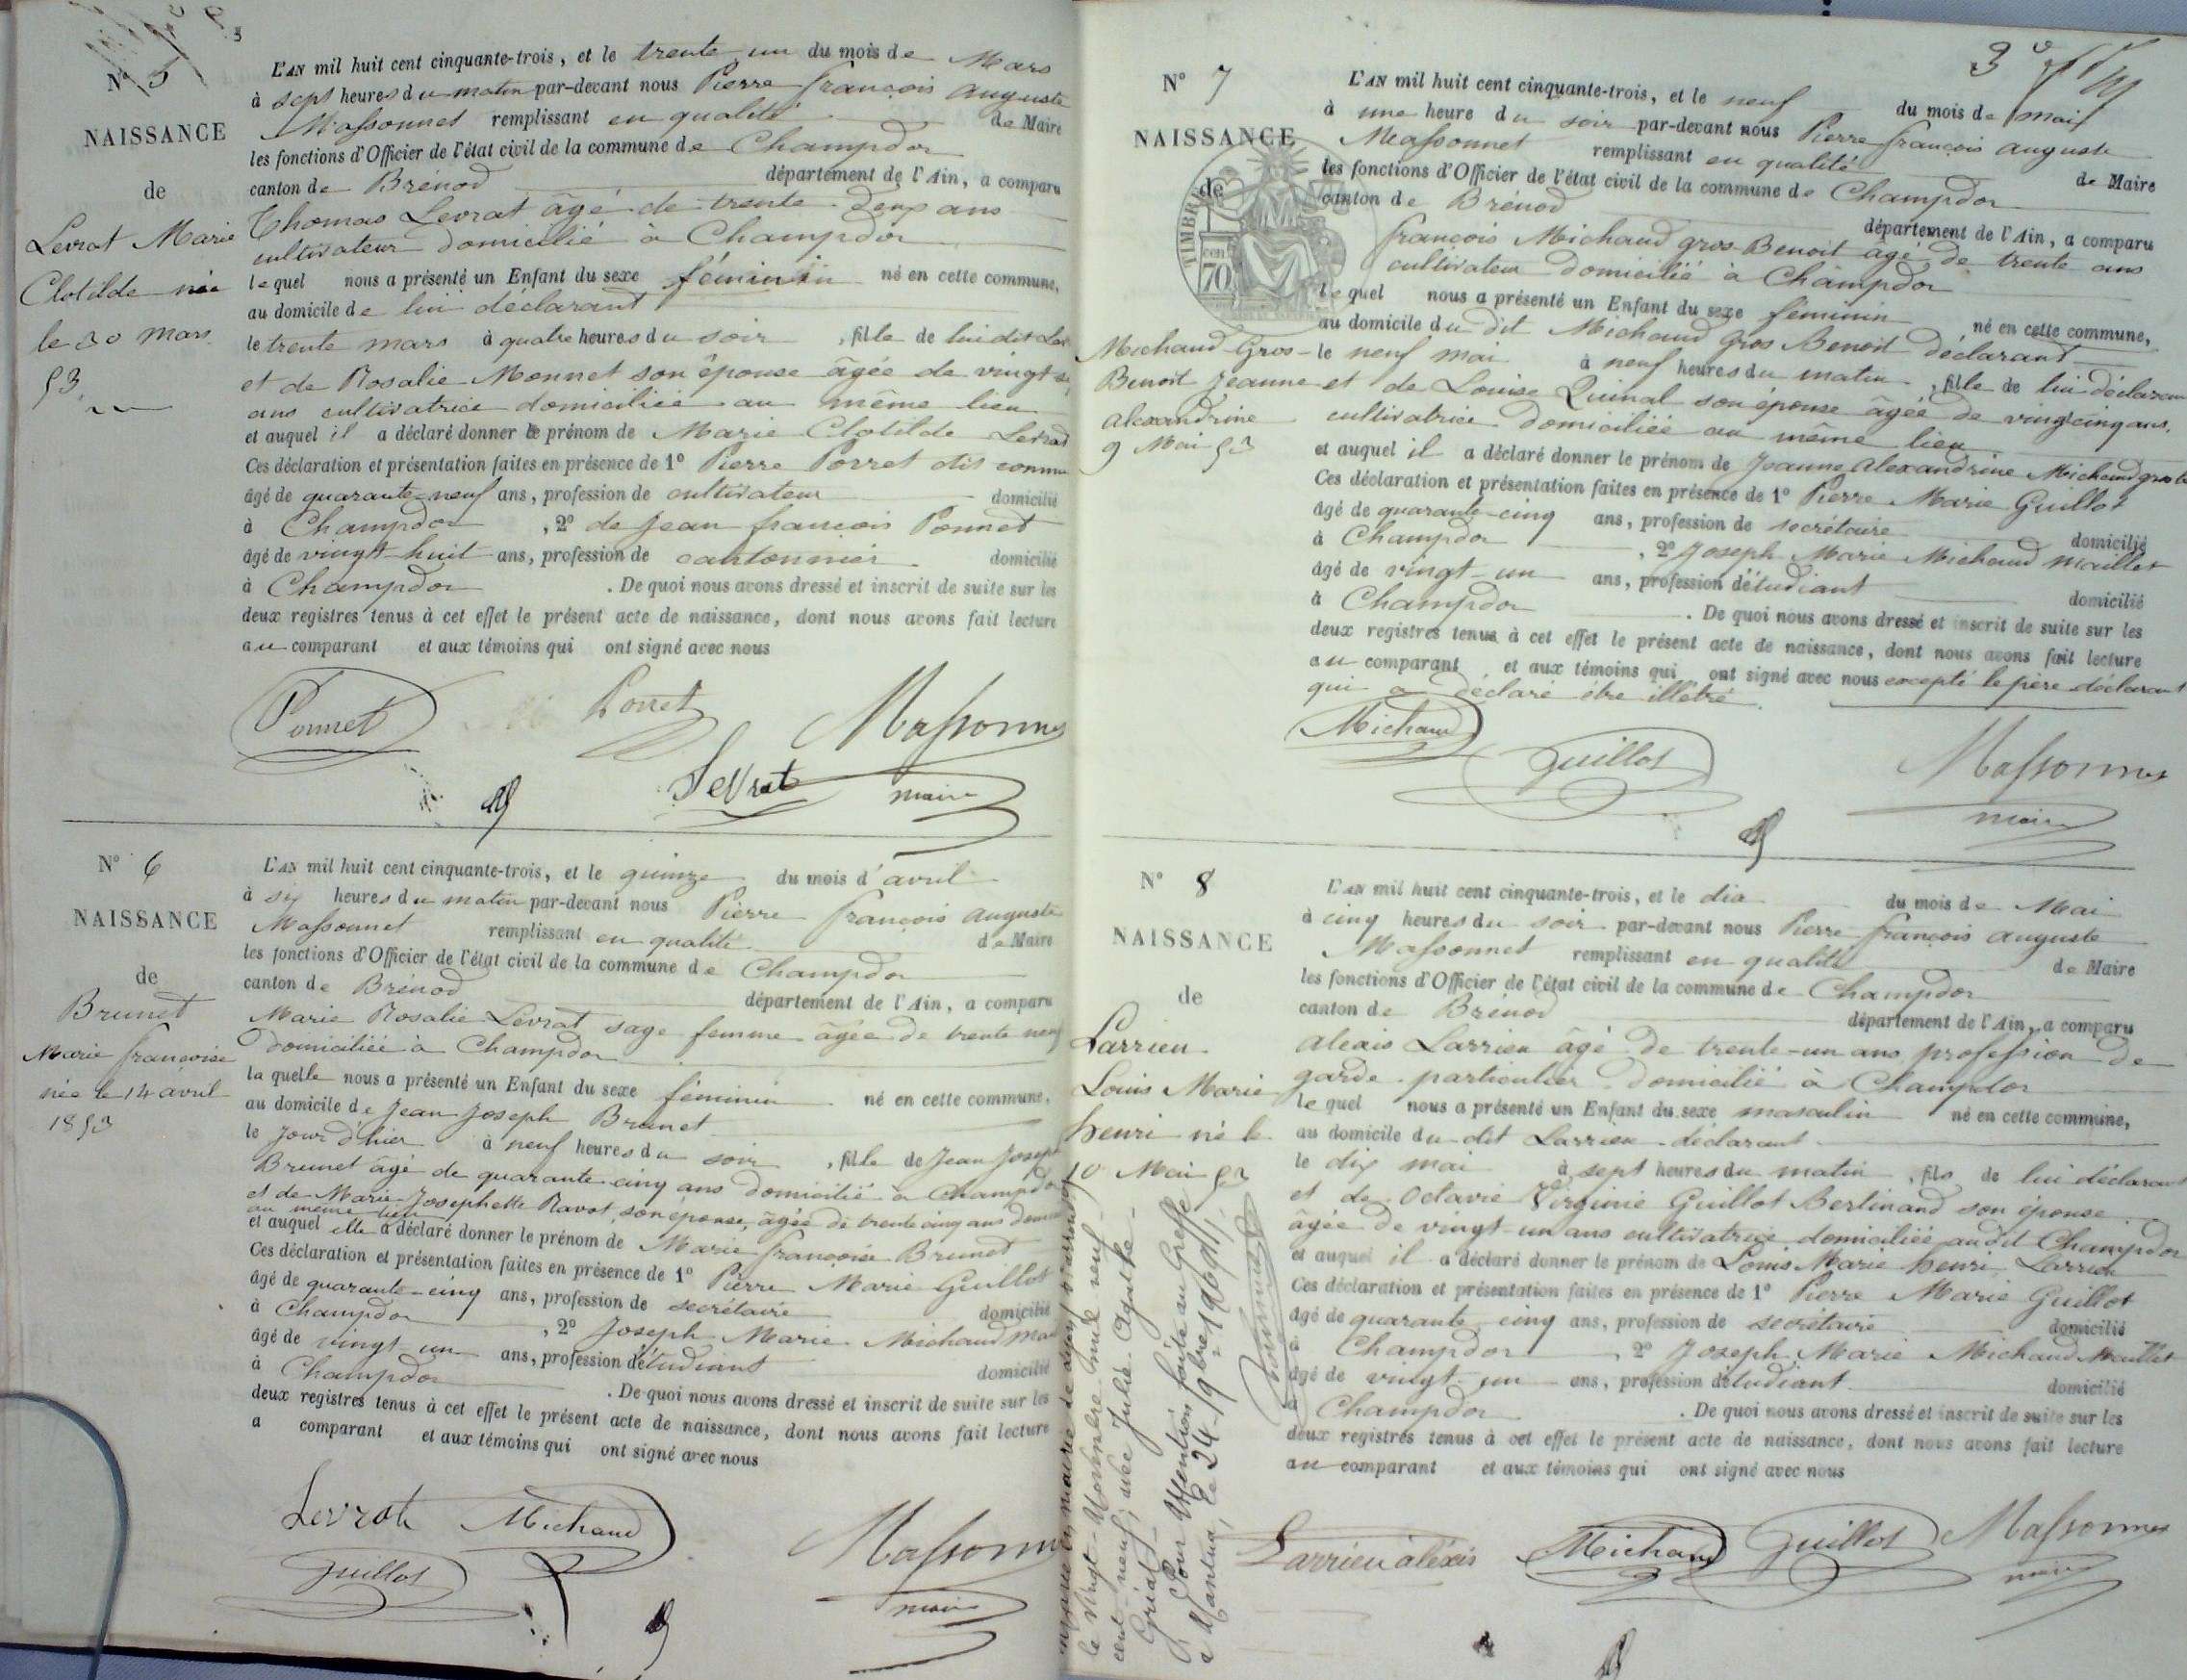 N° 5
NAISSANCE
de
Levrat Marie
Clotilde née
le 30 mars
53.
L'AN mil huit cent cinquante-trois, et le trente un du mois de Mars
à sept heures du matin par-devant nous Pierre françois auguste
Massonnet remplissant en qualité de Maire
les fonctions d'Officier de l'état civil de la commune de Champdor
canton de Brénod département de l'Ain, a comparu
Thomas Levrat âgé de trente deux ans
cultivateur domicilié à Champdor
lequel nous a présenté un Enfant du sexe féminin né en cette commune,
au domicile de lui déclarant
le trente mars à quatre heures du soir, fille de lui dit
et de Rosalie Monnet son épouse âgée de vingt
ans cultivatrice domiciliée au même lieu
et auquel il a déclaré donner le prénom de Marie Clotilde Levrat
Ces déclaration et présentation faites en présence de 1° Pierre Porret dit
âgé de quarante-neuf ans, profession de cultivateur domicilié
à Champdor, 2° de Jean françois Ponnet
âgé de vingt-huit ans, profession de cantonnier domicilié
à Champdor. De quoi nous avons dressé et inscrit de suite sur les
deux registres tenus à cet effet le présent acte de naissance, dont nous avons fait lecture
au comparant et aux témoins qui ont signé avec nous
Ponnet Porret Massonnet
Levrat maire
N° 6
NAISSANCE
de
Brunet
Marie françoise
née le 14 avril
1853
L'AN mil huit cent cinquante-trois, et le quinze du mois d'avril
à six heures du matin par-devant nous Pierre françois auguste
Massonnet remplissant en qualité de Maire
les fonctions d'Officier de l'état civil de la commune de Champdor
canton de Brénod département de l'Ain, a comparu
Marie Rosalie Levrat sage femme âgée de trente neuf
domiciliée à Champdor
laquelle nous a présenté un Enfant du sexe féminin né en cette commune,
au domicile de Jean Joseph Brunet
le jour d'hier à neuf heures du soir, fille de Jean Joseph
Brunet âgé de quarante-cinq ans domicilié à Champdor
et de Marie Josephette Ravot son épouse, âgée de trente cinq ans
au même lieu
et auquel elle a déclaré donner le prénom de Marie françoise Brunet
Ces déclaration et présentation faites en présence de 1° Pierre Marie Guillot
âgé de quarante-cinq ans, profession de secrétaire domicilié
à Champdor, 2° Joseph Marie Michaud
âgé de vingt un ans, profession d'étudiant domicilié
à Champdor. De quoi nous avons dressé et inscrit de suite sur les
deux registres tenus à cet effet le présent acte de naissance, dont nous avons fait lecture
a comparant et aux témoins qui ont signé avec nous
Levrat Michaud
Guillot Massonnet
maire
N° 7
NAISSANCE
de
TIMBRE
70
Michaud-Gros-
Benoit Jeanne
alexandrine
9 Mai 53
L'AN mil huit cent cinquante-trois, et le neuf du mois de mai
à une heure du soir par-devant nous Pierre françois auguste
Massonnet remplissant en qualité de Maire
les fonctions d'Officier de l'état civil de la commune de Champdor
canton de Brénod département de l'Ain, a comparu
françois Michaud gros Benoit âgé de trente ans
cultivateur domicilié à Champdor
lequel nous a présenté un Enfant du sexe féminin né en cette commune,
au domicile du dit Michaud Gros Benoit déclarant
le neuf mai à neuf heures du matin, fille de lui déclarant
et de Louise Quinal son épouse âgée de vingt cinq ans,
cultivatrice domiciliée au même lieu
et auquel il a déclaré donner le prénom de Jeanne alexandrine Michaud gros
Ces déclaration et présentation faites en présence de 1° Pierre Marie Guillot
âgé de quarante-cinq ans, profession de secrétaire domicilié
à Champdor, 2° Joseph Marie Michaud Maillet
âgé de vingt-un ans, profession d'étudiant domicilié
à Champdor. De quoi nous avons dressé et inscrit de suite sur les
deux registres tenus à cet effet le présent acte de naissance, dont nous avons fait lecture
au comparant et aux témoins qui ont signé avec nous excepté le père déclarant
qui a déclaré être illétré
Michaud
Guillot Massonnet
maire
N° 8
NAISSANCE
de
Larrieu
Louis Marie
henri né le
10 Mai 53
L'AN mil huit cent cinquante-trois, et le dix du mois de Mai
à cinq heures du soir par-devant nous Pierre françois auguste
Massonnet remplissant en qualité de Maire
les fonctions d'Officier de l'état civil de la commune de Champdor
canton de Brénod département de l'Ain, a comparu
alexis Larrieu âgé de trente-un ans profession de
garde particulier domicilié à Champdor
lequel nous a présenté un Enfant du sexe masculin né en cette commune,
au domicile du dit Larrieu déclarant
le dix mai à sept heures du matin, fils de lui déclarant
et de Octavie Virginie Guillot Bertinand son épouse
âgée de vingt-un ans cultivatrice domiciliée audit Champdor
et auquel il a déclaré donner le prénom de Louis Marie henri Larrieu
Ces déclaration et présentation faites en présence de 1° Pierre Marie Guillot
âgé de quarante-cinq ans, profession de secrétaire domicilié
à Champdor, 2° Joseph Marie Michaud Maillet
âgé de vingt-un ans, profession d'étudiant domicilié
à Champdor. De quoi nous avons dressé et inscrit de suite sur les
deux registres tenus à cet effet le présent acte de naissance, dont nous avons fait lecture
au comparant et aux témoins qui ont signé avec nous
Larrieu aléxis Michaud Guillot Massonnet
maire
mairie de Lyon
le vingt Novembre mil neuf
cent neuf, avec Julie
Pour Mention faite au Greffe
à Nantua, le 24 9bre 1909